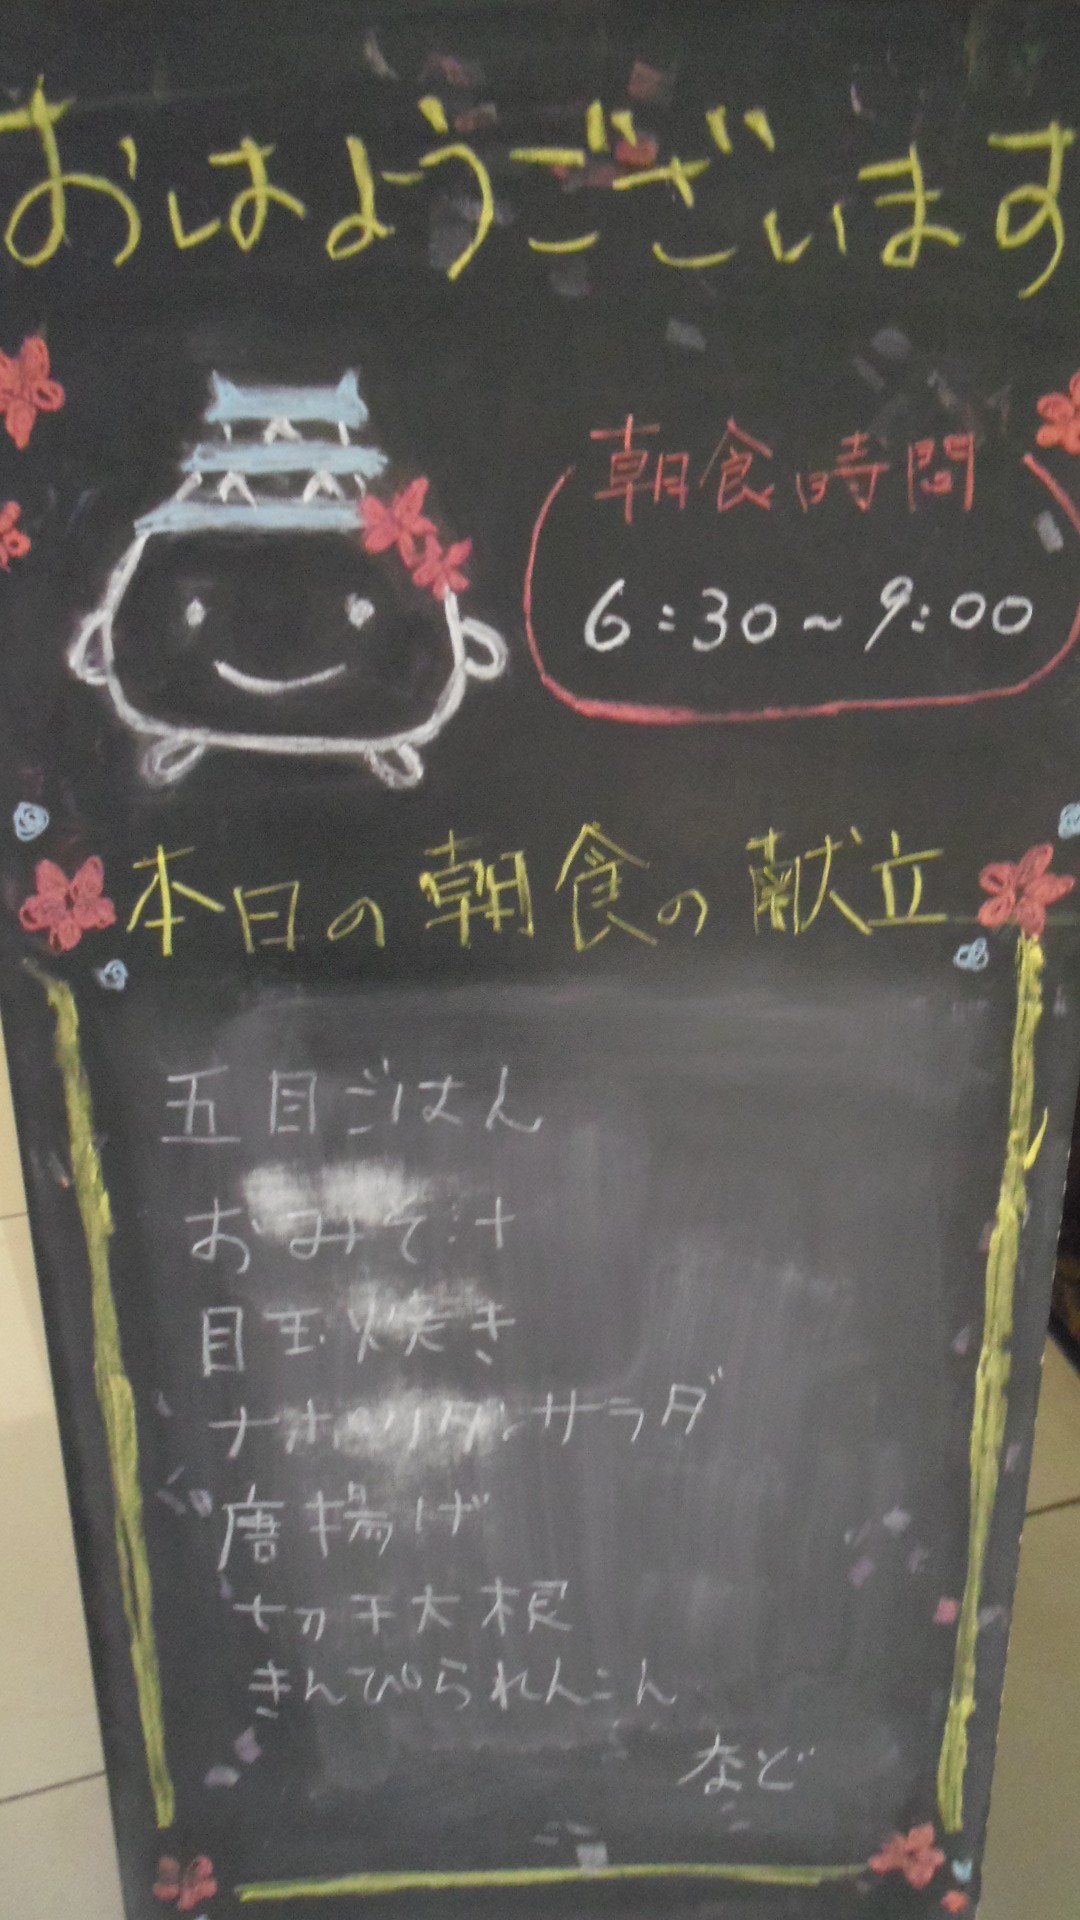 おはようございます
朝食時間
6:30~9:00
本日の朝食の献立
五目ごはん
おみそ汁
目玉焼き
ナポリタンサラダ
唐揚げ
切干大根
きんぴられんこん
など